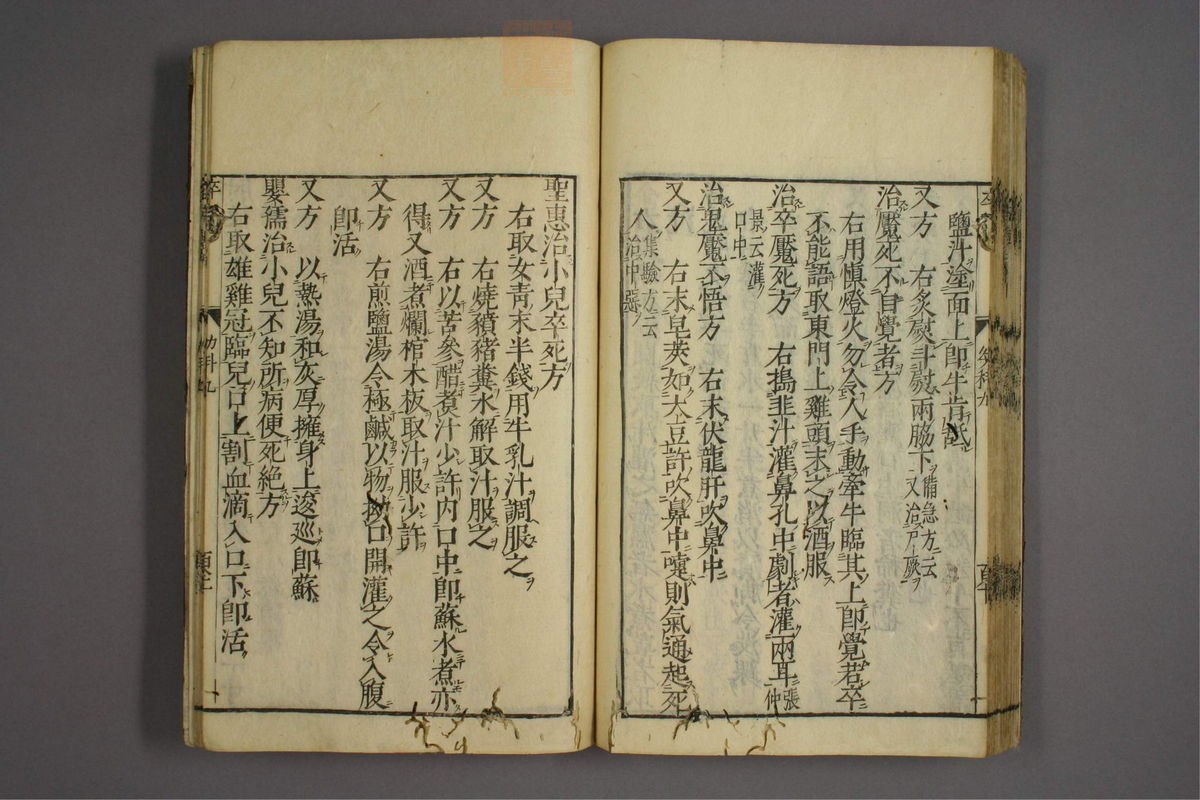 鹽汁塗面上即牛肯舐
又方 右炙熨斗熨兩脇下備急方云又治尸厥
治魘死不自覺者方
右用愼燈火勿令人手動牽牛臨其上即覺若卒
不能語取東門上雞頭末之以酒服
治卒魘死方 右搗韭汁灌鼻孔中劇者灌兩耳張仲
景云灌口中
治鬼魘不悟方 右末伏龍肝吹鼻中
又方 右末皂莢如大豆許吹鼻中嚏則氣通起死
人集驗方云治中惡
聖惠治小兒卒死方
右取女青末半錢用牛乳汁調服之
又方 右燒豶猪糞水解取汁服之
又方 右以苦參醋煑汁少許内口中即蘇水煮亦
得又酒煮爛棺木板取汁服少許
又方 右煎鹽湯令極鹹以物拗口開灌之令入腹
即活
又方 以熱湯和灰厚擁身上逡巡即蘇
嬰孺治小兒不知所病便死絶方
右取雄雞冠臨兒口上割血滴入口下即活